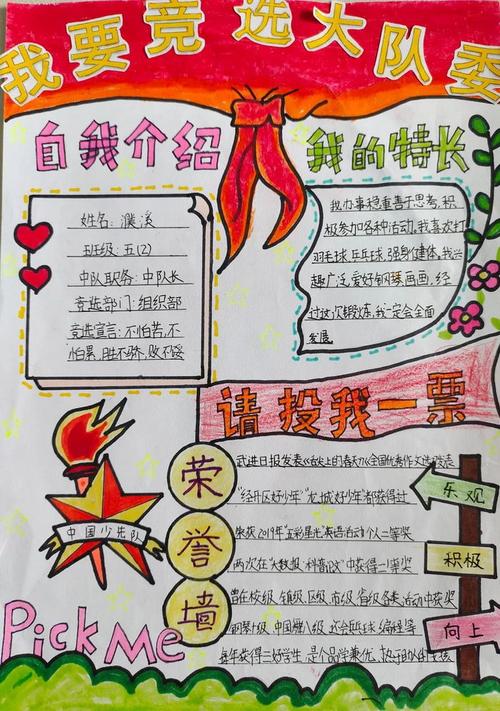 我要竞选大队委
自我介绍
姓名：濮溪
班级：五(2)
中队职务：中队长
竞选部门：组织部
竞选宣言：不怕苦，不
怕累，胜不骄，败不馁
我的特长
我办事稳重善于思考，积
极参加各种活动。我喜欢打
羽毛球，乒乓球，强身健体，我兴
趣广泛，爱好钢琴画画，经
过这次锻炼，我一定会全面
发展
请投我一票
中国少先队
Pick Me
荣
誉
墙
武进日报发表《舌尖上的春天》《全国优秀作文选》发表
"经开区好少年""龙城好少年"都获得过
荣获2019年"五彩星光"英语活动个人二等奖
两次在"大数据"科普论文"中获得一等奖
曾在校级、镇级、区级、市级、省级各类活动中获奖
钢琴十级，中国舞八级，还会乒乓球、编程等
每年获得三好学生，是个品学兼优，热于助人的
乐观
积极
向上